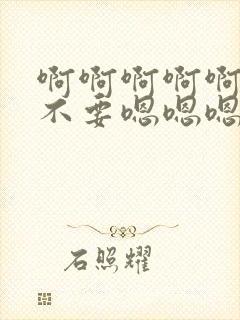 啊啊啊啊啊
不要嗯嗯嗯
石照耀